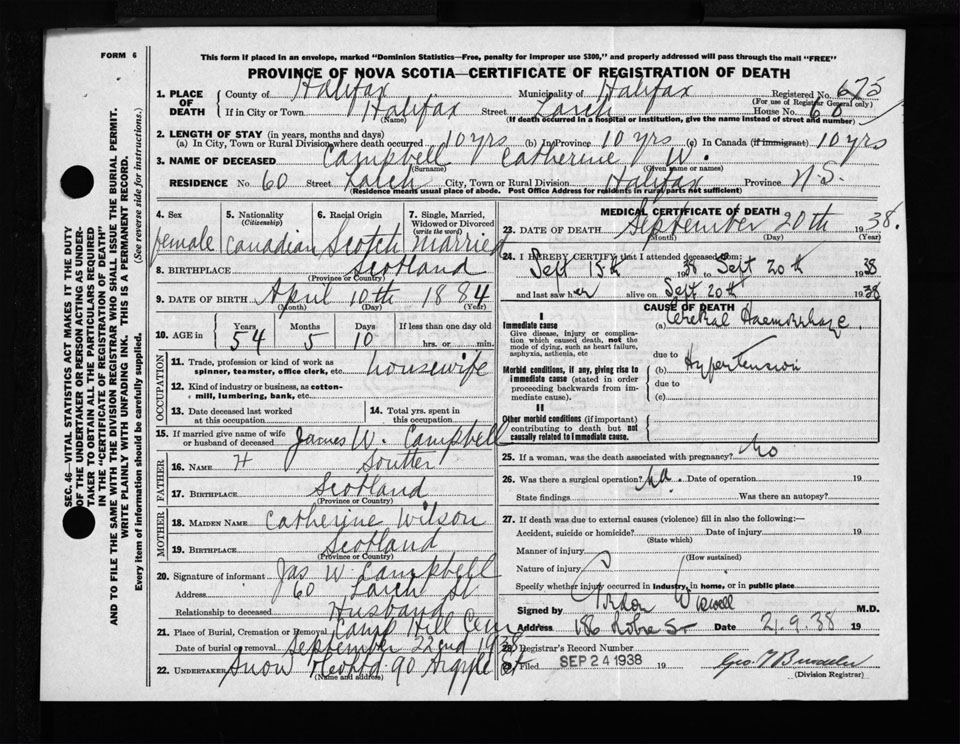 FORM 6
This form if placed in an envelope, marked "Dominion Statistics—Free, penalty for improper use $300," and properly addressed will pass through the mail "FREE"
PROVINCE OF NOVA SCOTIA—CERTIFICATE OF REGISTRATION OF DEATH
1. PLACE OF DEATH County of Halifax Municipality of Halifax Registered No. 675
(For use of Registrar General only)
If in City or Town Halifax Street Larch House No. 60
(Name) (If death occurred in a hospital or institution, give the name instead of street and number)
2. LENGTH OF STAY (in years, months and days)
(a) In City, Town or Rural Division where death occurred 10 yrs (b) In Province 10 yrs (c) In Canada (if immigrant) 10 yrs
3. NAME OF DECEASED Campbell Catherine W.
(Surname) (Given name or names)
RESIDENCE No. 60 Street Larch City, Town or Rural Division Halifax Province N.S.
(Residence means usual place of abode. Post Office Address for residents in rural parts not sufficient)
4. Sex 5. Nationality (Citizenship) 6. Racial Origin 7. Single, Married, Widowed or Divorced (write the word)
female Canadian Scotch Married
8. BIRTHPLACE Scotland
(Province or Country)
9. DATE OF BIRTH April 10th 1884
(Month) (Day) (Year)
10. AGE in Years Months Days If less than one day old
54 5 10 hrs. or min.
OCCUPATION
11. Trade, profession or kind of work as spinner, teamster, office clerk, etc. housewife
12. Kind of industry or business, as cotton-mill, lumbering, bank, etc.
13. Date deceased last worked at this occupation 14. Total yrs. spent in this occupation
15. If married give name of wife or husband of deceased James W. Campbell
FATHER
16. NAME H Soutter
17. BIRTHPLACE Scotland
(Province or Country)
MOTHER
18. MAIDEN NAME Catherine Wilson
19. BIRTHPLACE Scotland
(Province or Country)
20. Signature of informant Jas W Campbell
Address 60 Larch St
Relationship to deceased Husband
21. Place of Burial, Cremation or Removal Camp Hill Cem
Date of burial or removal September 22nd 1938
22. UNDERTAKER Snow 90 Argyle St
(Name and address)
MEDICAL CERTIFICATE OF DEATH
23. DATE OF DEATH September 20th 1938.
(Month) (Day) (Year)
24. I HEREBY CERTIFY that I attended deceased from:
Sept 15th 1938 to Sept 20th 1938
and last saw her alive on Sept 20th 1938
CAUSE OF DEATH
I
Immediate cause (a) Cerebral Haemorrhage.
Give disease, injury or complication which caused death, not the mode of dying, such as heart failure, asphyxia, asthenia, etc
due to
(b) Hypertension
Morbid conditions, if any, giving rise to immediate cause (stated in order proceeding backwards from immediate cause).
due to
(c)
II
Other morbid conditions (if important) contributing to death but not causally related to immediate cause.
25. If a woman, was the death associated with pregnancy? No
26. Was there a surgical operation? No. Date of operation 19
State findings Was there an autopsy?
27. If death was due to external causes (violence) fill in also the following:—
Accident, suicide or homicide? Date of injury 19
(State which)
Manner of injury
(How sustained)
Nature of injury
Specify whether injury occurred in industry, in home, or in public place
Signed by Gordon Wiswell M.D.
Address 186 Robie St Date 21.9.38 19
28. Registrar's Record Number
Filed SEP 24 1938 19
(Division Registrar)
SEC. 46—VITAL STATISTICS ACT MAKES IT THE DUTY
OF THE UNDERTAKER OR PERSON ACTING AS UNDER-
TAKER TO OBTAIN ALL THE PARTICULARS REQUIRED
IN THE "CERTIFICATE OF REGISTRATION OF DEATH"
AND TO FILE THE SAME WITH THE DIVISION REGISTRAR WHO SHALL ISSUE THE BURIAL PERMIT.
WRITE PLAINLY WITH UNFADING INK. THIS IS A PERMANENT RECORD.
Every item of information should be carefully supplied. (See reverse side for instructions.)